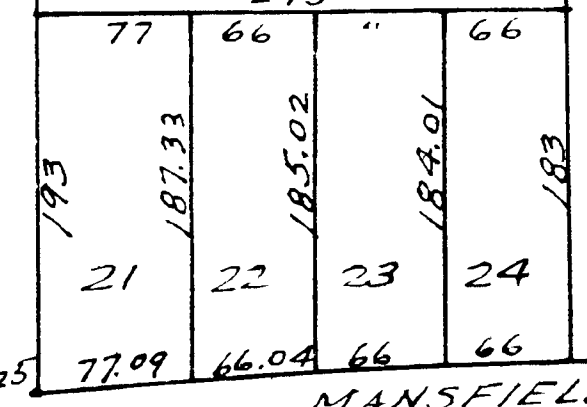 77 66 " 66
193 187.33 185.02 184.01 183
21 22 23 24
77.09 66.04 66 66